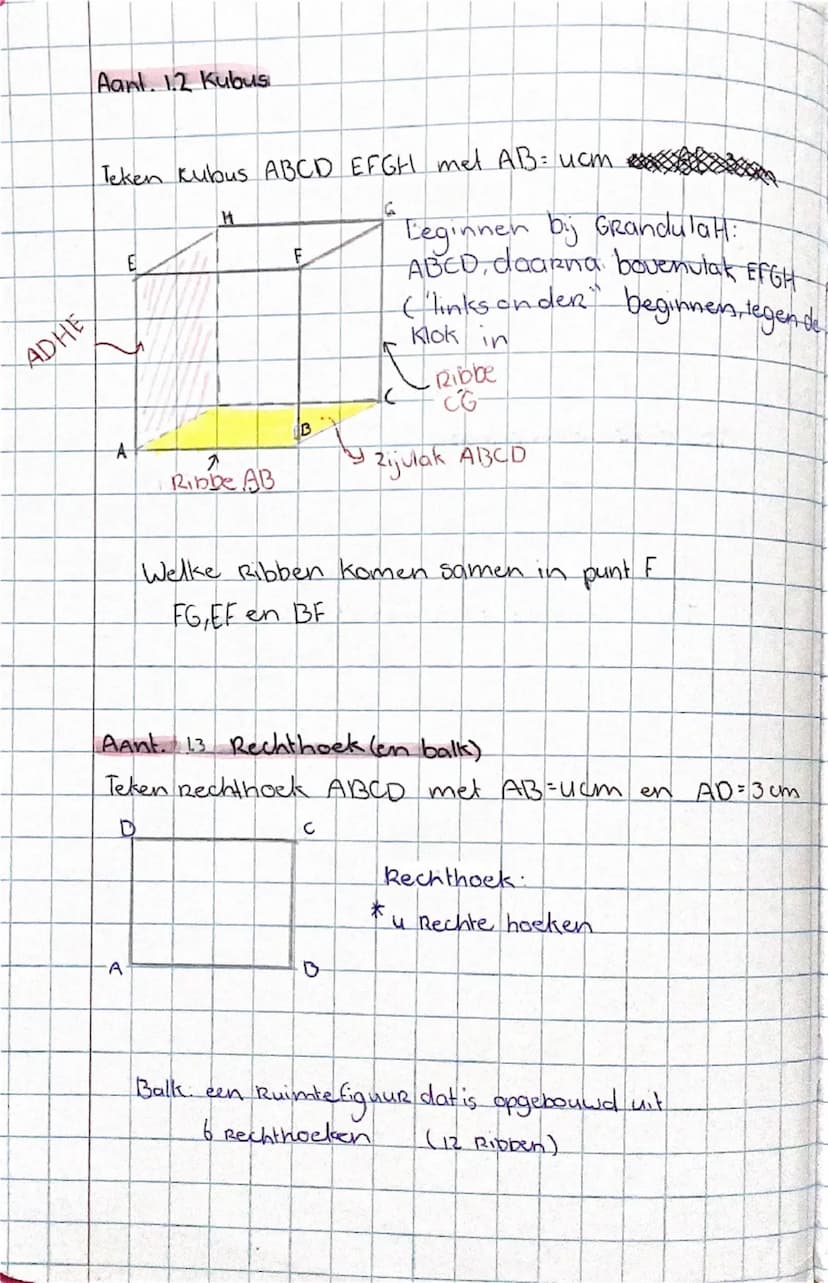 Aant. 1.2 Kubus
Teken kubus ABCD EFGH met AB = 4cm
H
G
E
F
Beginnen bij Grondvlak:
ABCD, daarna bovenvlak EFGH
("links onder" beginnen, tegen de
klok in
ADHE
Ribbe
CG
C
B
A
zijvlak ABCD
Ribbe AB
Welke Ribben komen samen in punt F
FG, EF en BF
Aant. 1.3 Rechthoek (en balk)
Teken rechthoek ABCD met AB = 4cm en AD = 3cm
D
C
Rechthoek:
* 4 Rechte hoeken
A
B
Balk: een Ruimtefiguur dat is opgebouwd uit
6 Rechthoeken (12 Ribben)